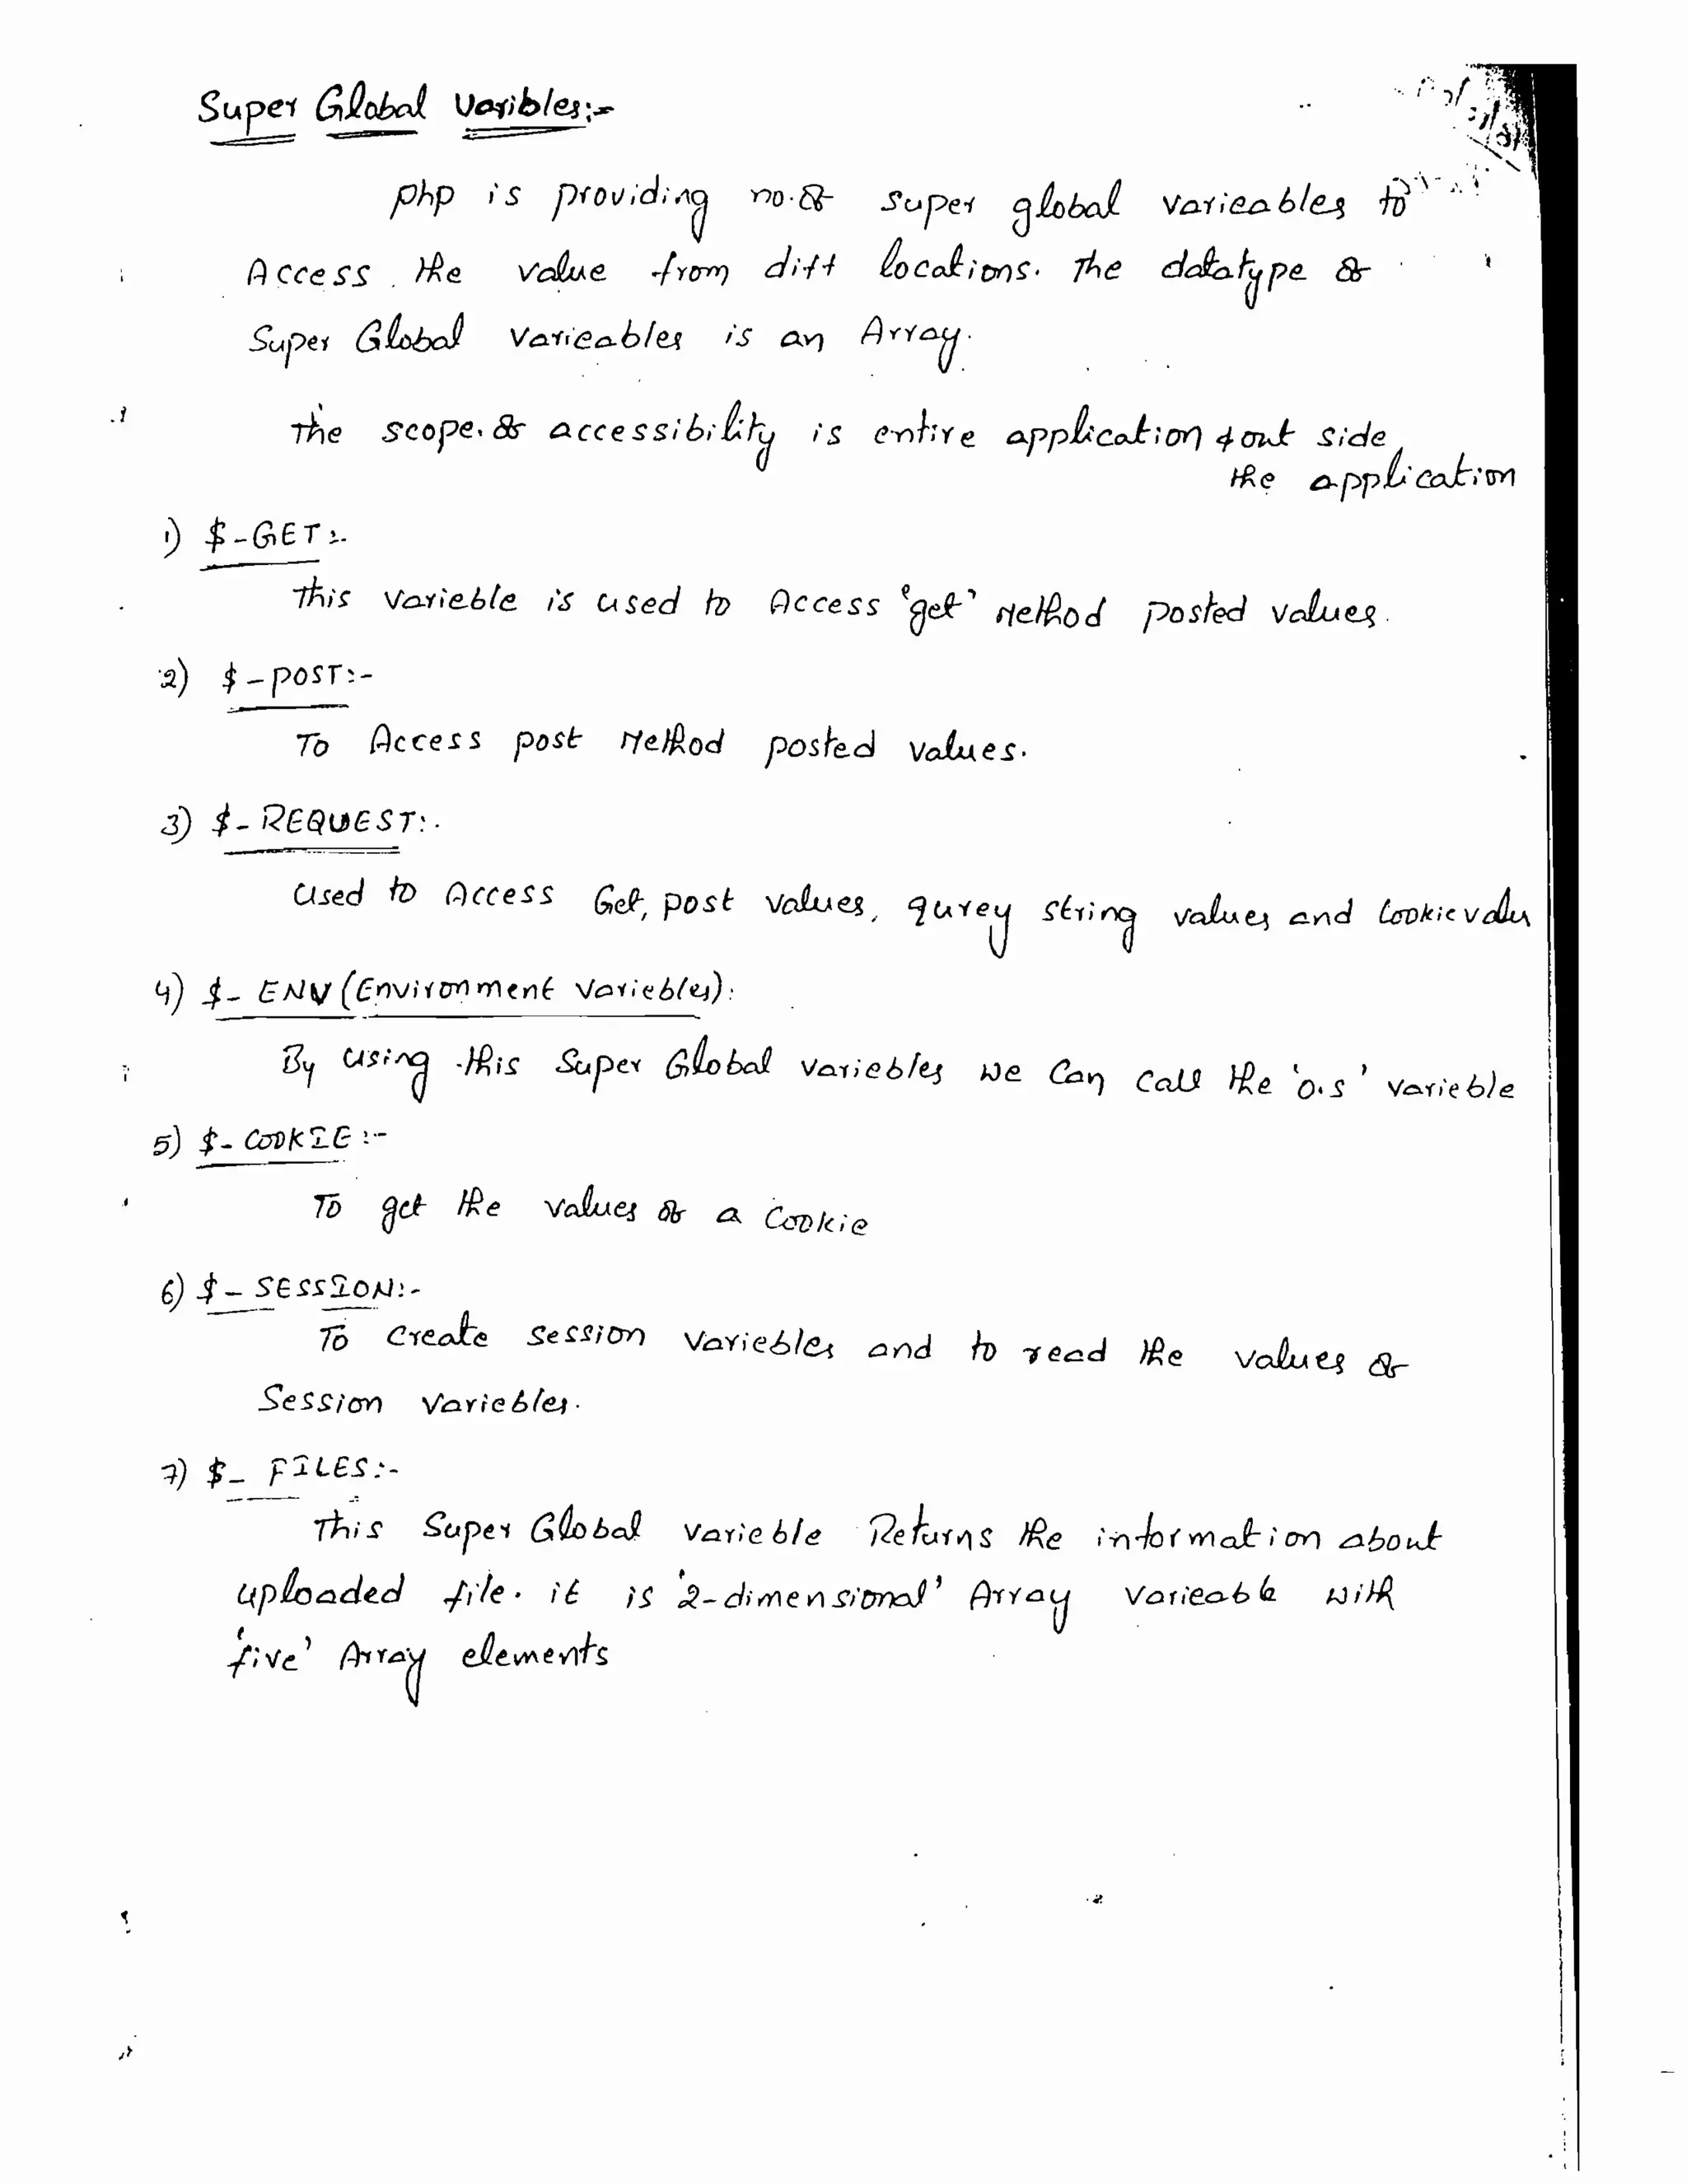 Super Global Varibles:-
php is providing no.of super global varieables to
Access the value from diff locations. The datatype of
Super Global varieables is an Array.
The scope of accessibility is entire application & out side
the application
1) $-GET:-
This varieble is used to Access 'get' Method posted values.
2) $-POST:-
To Access post Method posted values.
3) $-REQUEST:-
Used to Access Get, post values, qurey string values and Cookie
4) $-ENV (Environment Variebles):
By using this Super Global variebles we can call the 'O.S' varieble
5) $-COOKIE:-
To get the values of a Cookie
6) $-SESSION:-
To create session variebles and to read the values of
Session variebles.
7) $_ FILES:-
This Super Global varieble Returns the information about
uploaded file. it is '2-dimensional' Array varieable with
'five' Array elements